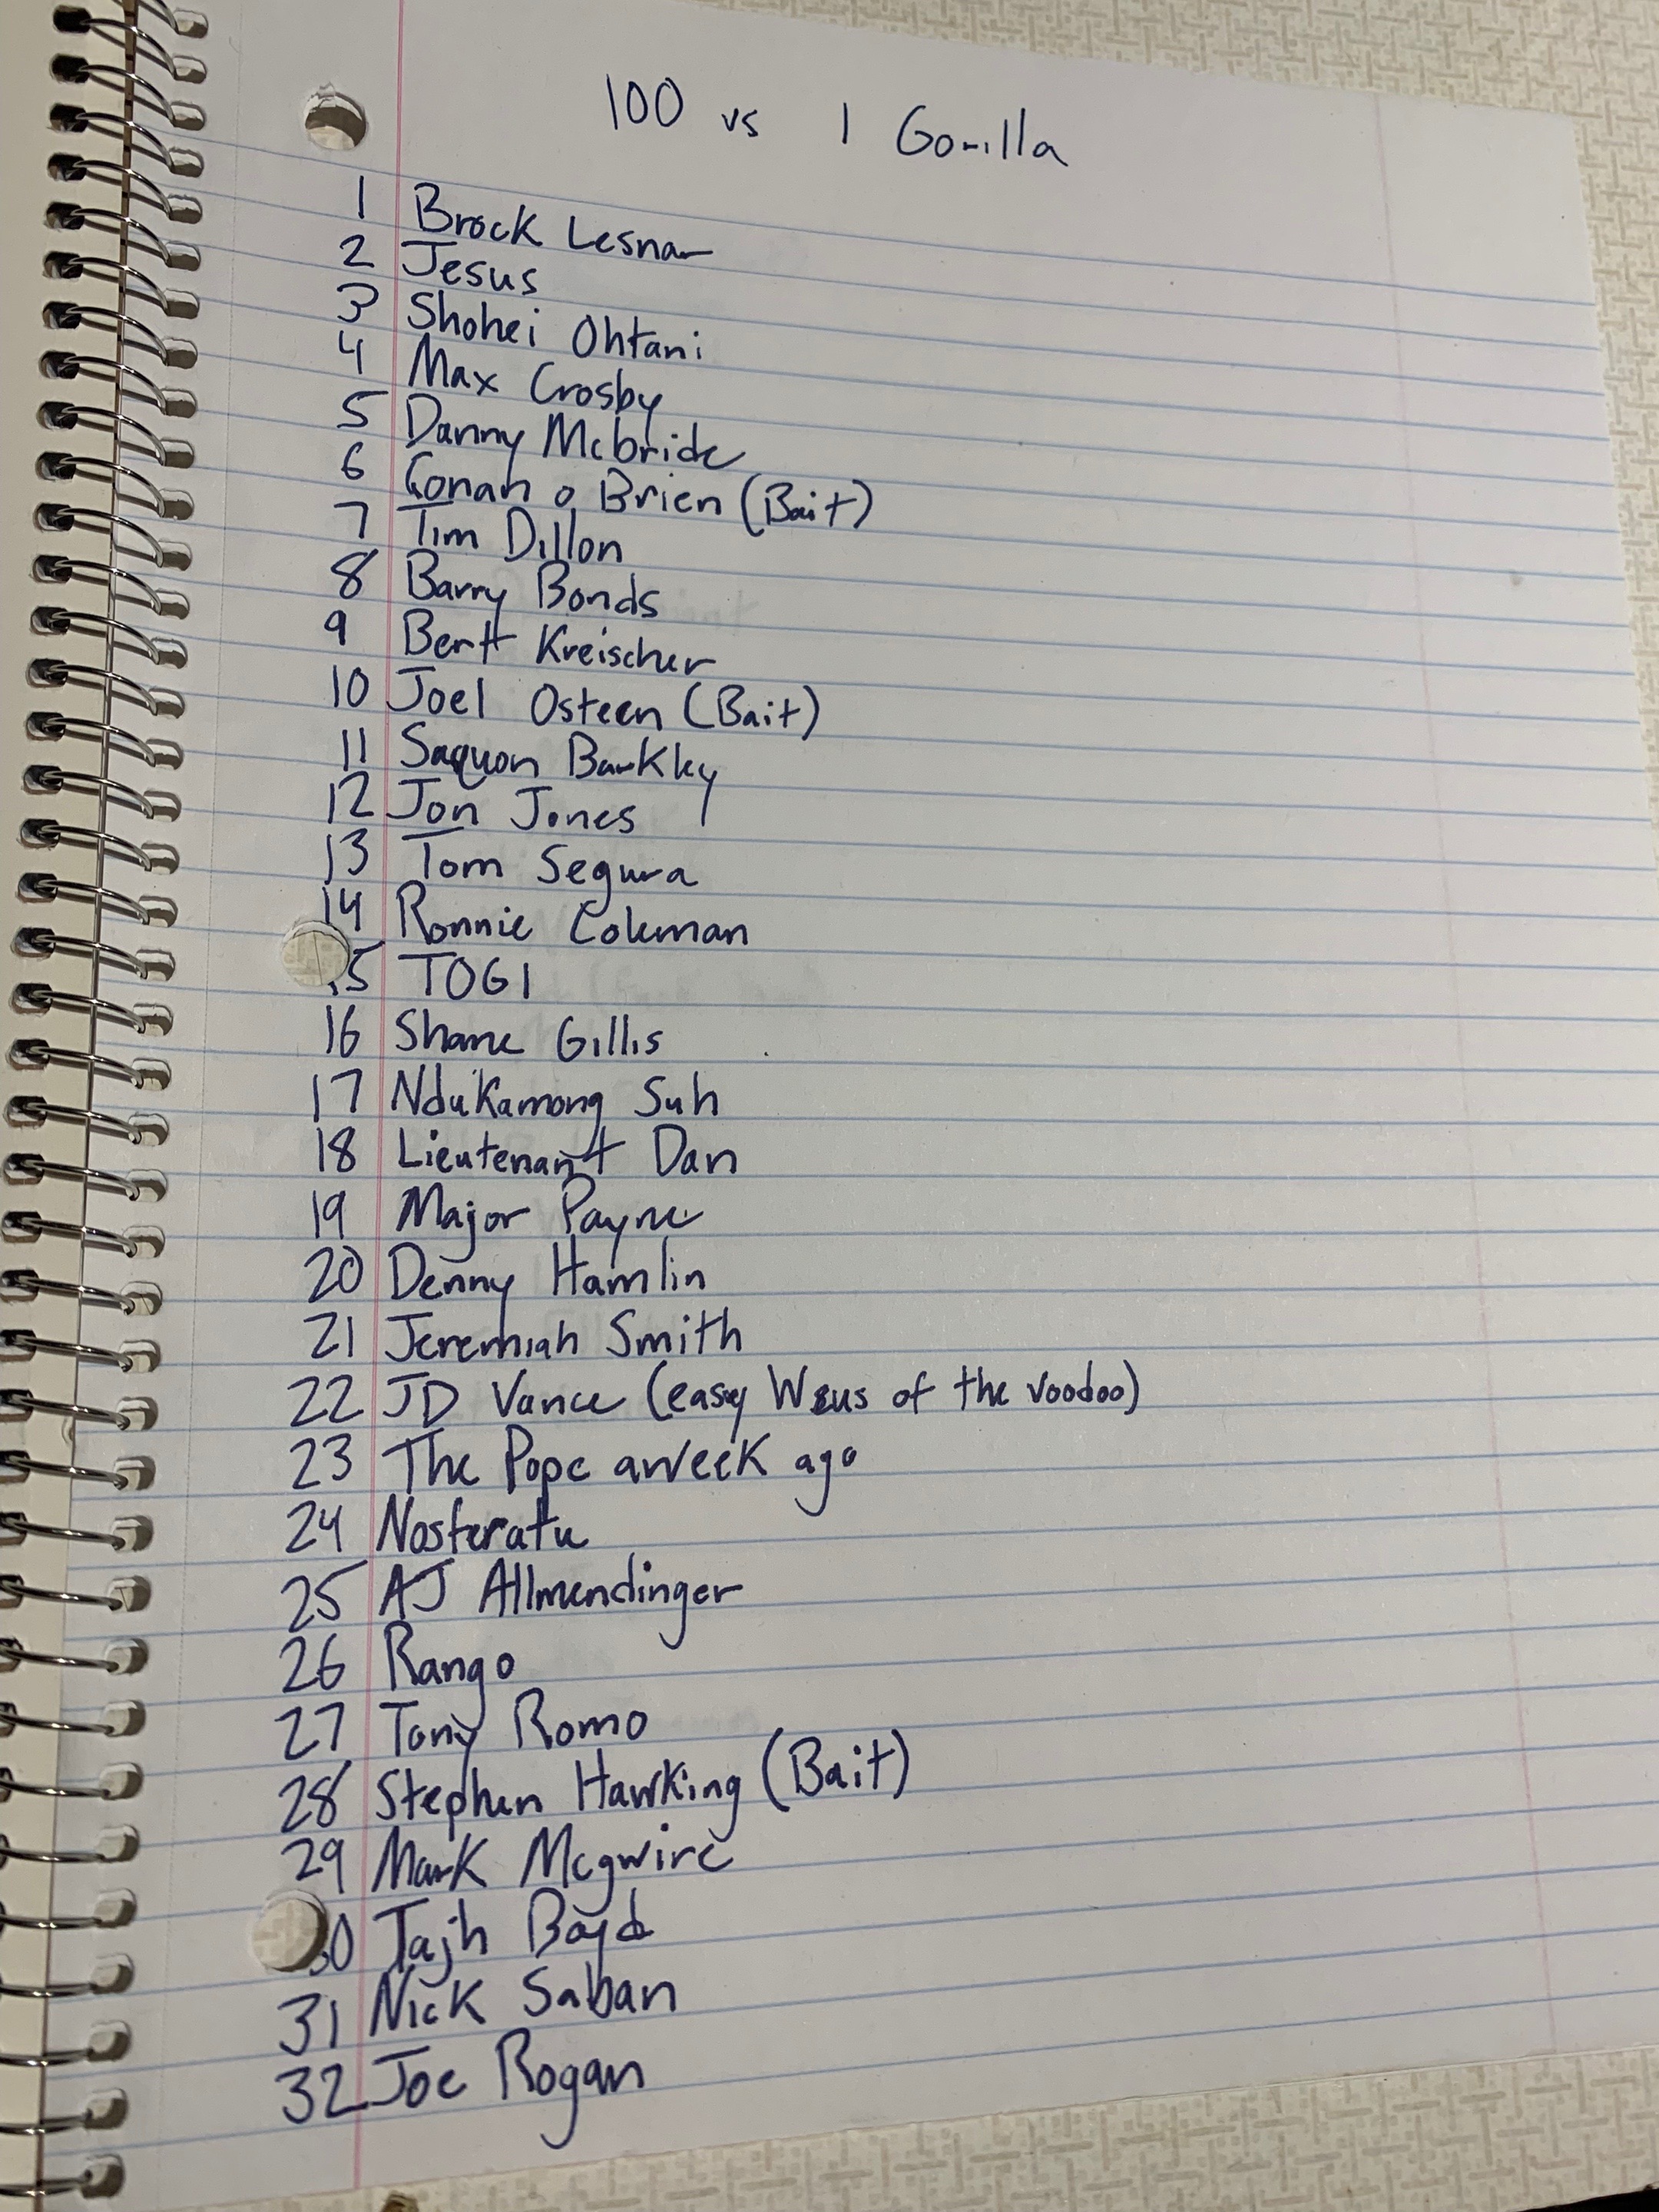 100 vs 1 Gorilla
1 Brock Lesnar
2 Jesus
3 Shohei Ohtani
4 Max Crosby
5 Danny Mcbride
6 Conan o Brien (Bait)
7 Tim Dillon
8 Barry Bonds
9 Bertt Kreischer
10 Joel Osteen (Bait)
11 Saquon Barkley
12 Jon Jones
13 Tom Segura
14 Ronnie Coleman
15 TOGI
16 Shane Gillis
17 Ndukamong Suh
18 Lieutenant Dan
19 Major Payne
20 Denny Hamlin
21 Jeremiah Smith
22 JD Vance (easy of the voodoo)
23 The Pope aweek ago
24 Nosferatu
25 AJ Allmendinger
26 Rango
27 Tony Romo
28 Stephen Hawking (Bait)
29 Mark Mcgwire
30 Tajh Boyd
31 Nick Saban
32 Joe Rogan